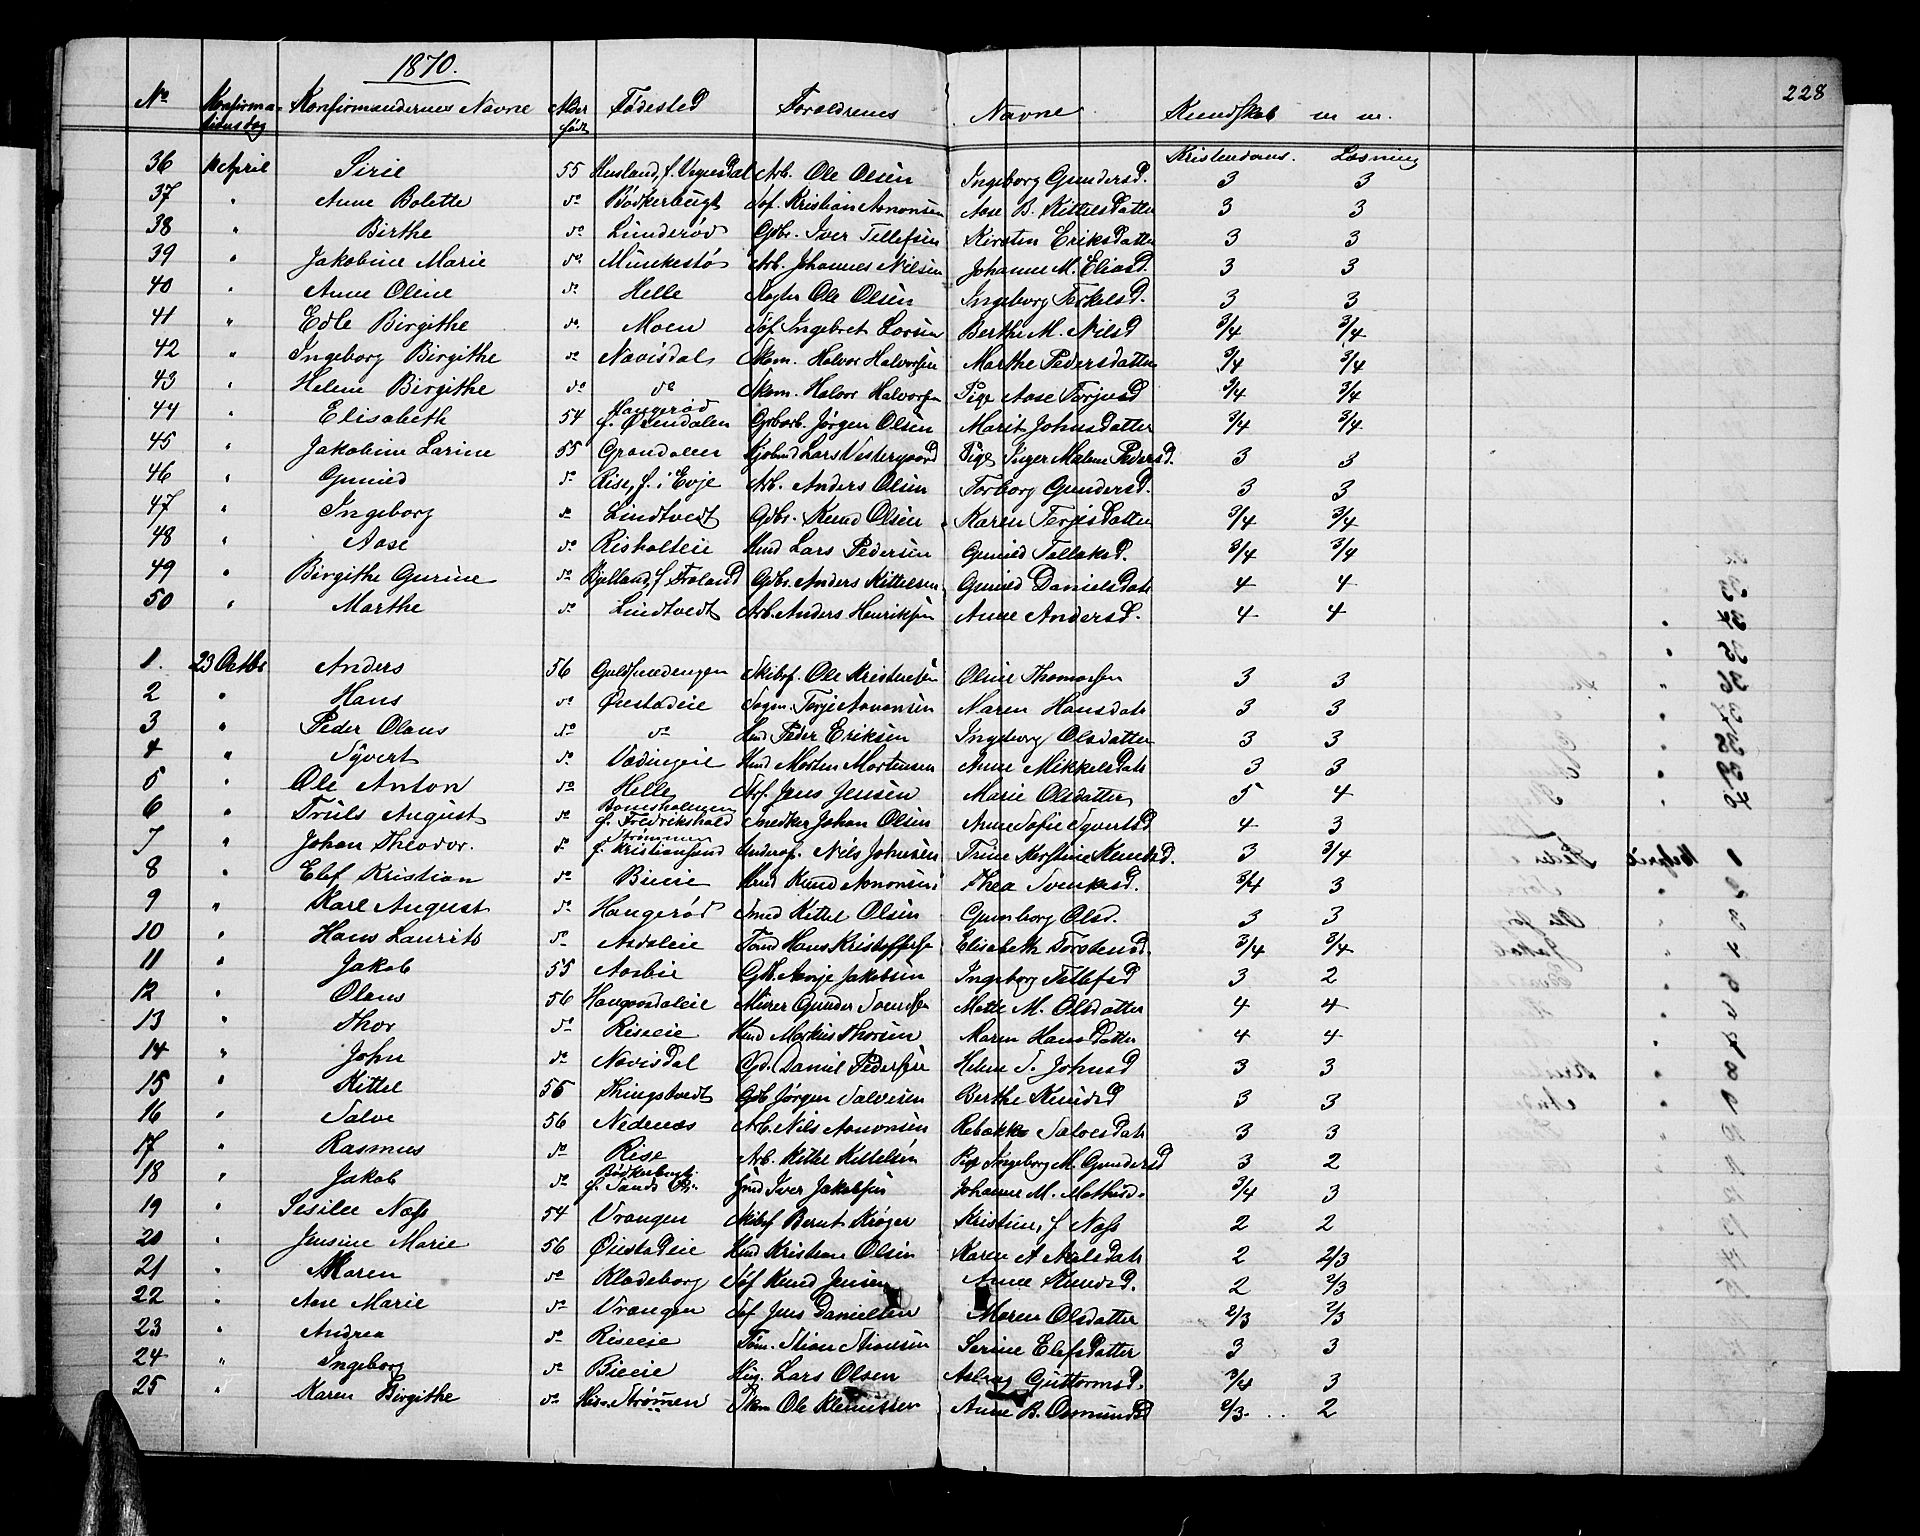 228
1870.
No Konfirmationsdag Konfirmandernes Navne Alder født Fødested Forældrenes Navne Kundskab m m.
Kristendoms. Læsning
36 April Sirie 55 Ole Olsen Ingeborg Gundersd. 3 3
37 " Anne Bolette do Bødkerbugt Søf. Kristian Aanonsen Aase B. Kittelsdatter 3 3
38 " Birthe do Lunderød Gdbr. Iver Tellefsen Kirsten Eriksdatter 3 3
39 " Jakobine Marie do. Munkestø Arb. Johannes Nilsen Johanne M. Eliasd. 3 3
40 " Anne Oline do Helle Ole Olsen Ingeborg Terkelsd. 3 3
41 " Edle Birgithe do. Moen Søf. Ingebret Larsen Berthe M. Nilsd 3/4 3/4
42 " Ingeborg Birgithe do Navisdal Skom. Halvor Halvorsen Marthe Pedersdatter 3/4 3/4
43 " Helene Birgithe do do Skom. Halvor Halvorsen Pige Aase Terjesd 3/4 3/4
44 " Elisabeth 54 Haugerød f. Øiendalen Grbarb. Jørgen Olsen Marit Johnsdatter 3/4 3/4
45 " Jakobine Larine 55 Grøndalen Lars Vestergaard Pige Inger Malene Pedersd. 3 3
46 " Gunild do Rise, f. i Evje Arb. Anders Olsen Torborg Gundersd. 3 3
47 " Ingeborg do Lindtvedt Gdbr. Knud Olsen Karen Terjesdatter 3/4 3/4
48 " Aase do Risholteie Hmd Lars Pedersen Gunild Tellaksd. 3/4 3/4
49 " Birgithe Gurine do Bjelland, f. Froland Gdbr. Anders Kittelsen Gunild Danielsdatr 4 4
50 " Marthe do Lindtvedt Arb. Anders Henriksen Anne Andersd. 4 4
1. 23 Octbr Anders 56 Guldsmedengen Skibsf. Ole Kristensen Oline Thomassen 3 3
2 " Hans do Øiestadeie Terje Aanonsen Maren Hansdatr 3 3
3 " Peder Olaus do do Hmd Peder Eriksen Ingeborg Olsdatter 3 3
4 " Syvert do Vedingeie Hmd Morten Mortensen Anne Mikkelsdatr 3 3
5 " Ole Anton do Helle Jens Jensen Marie Olsdatter 5 4
6 " Truls August do f. Fredrikshald Snedker Johan Olsen Anne Sofie Syvertsd 4 3
7 " Johan Theodor. do Strømmen f. Kristiansand Underof. Nils Johnsen Trine Kerstine Knudsd. 3 3/4
8 " Elef Kristian do Bieeie Hmd Knud Aanonsen Thea Svenkesd. 3/4 3
9 " Karl August do Haugerød Smed Kittel Olsen Gunborg Olsd. 3 3
10 " Hans Laurits do Asdaleie Tømd Hans Kristoffersen Elisabeth Torstensd. 3/4 3/4
11 " Jakob 55 Aasbie Gdb. Aanje Jakobsen Ingeborg Tellefsd 3 2
12 " Olaus 56 Haugaasdaleie Murer Gunder Svendsen Mette M. Olsdatter 4 4
13 " Thor do Riseeie Hmd Markus Thorsen Maren Hansdatter 4 4
14 " John do Navisdal Gd. Daniel Pedersen Helene S. Johnsd 3 3
15 " Kittel 56 Thingstvedt Gdb Jørgen Salvesen Berthe Knudsd 3 3
16 " Salve 56 Nedenæs Arb. Nils Aanonsen Rebække Salvesdatr 3 3
17 " Rasmus do Rise Arb. Kittel Kittelsen Pige Ingeborg M. Gundersd 3 2
18 " Jakob do Bødkerbugt. f. Sands Pr. Iver Jakobsen Johanne M. Mathisd. 3/4 3
19 " Sesilie Næss 54 Vrangen Skibsf Bernt Krøger Kristine, f Næss 2 2
20 " Jensine Marie 56 Øiestadeie Hmd Kristian Olsen Karen A Nielsdatr 2 2/3
21 " Maren do Kladeborg Søf Knud Jensen Anne Knudsd. 2 2/3
22 " Aase Marie do Vrangen Søf Jens Danielsen Maren Olsdatter 2/3 2/3
23 " Andrea do Riseeie Tøm. Stian Stiansen Serine Elefsdatter 3 3
24 " Ingeborg do Bieeie Lars Olsen Aslaug Guttormsd. 3/4 3
25 " Karen Birgithe do His. Strømmen Skom Ole Klemitsen Anne B. Osmundsd 2/3 2